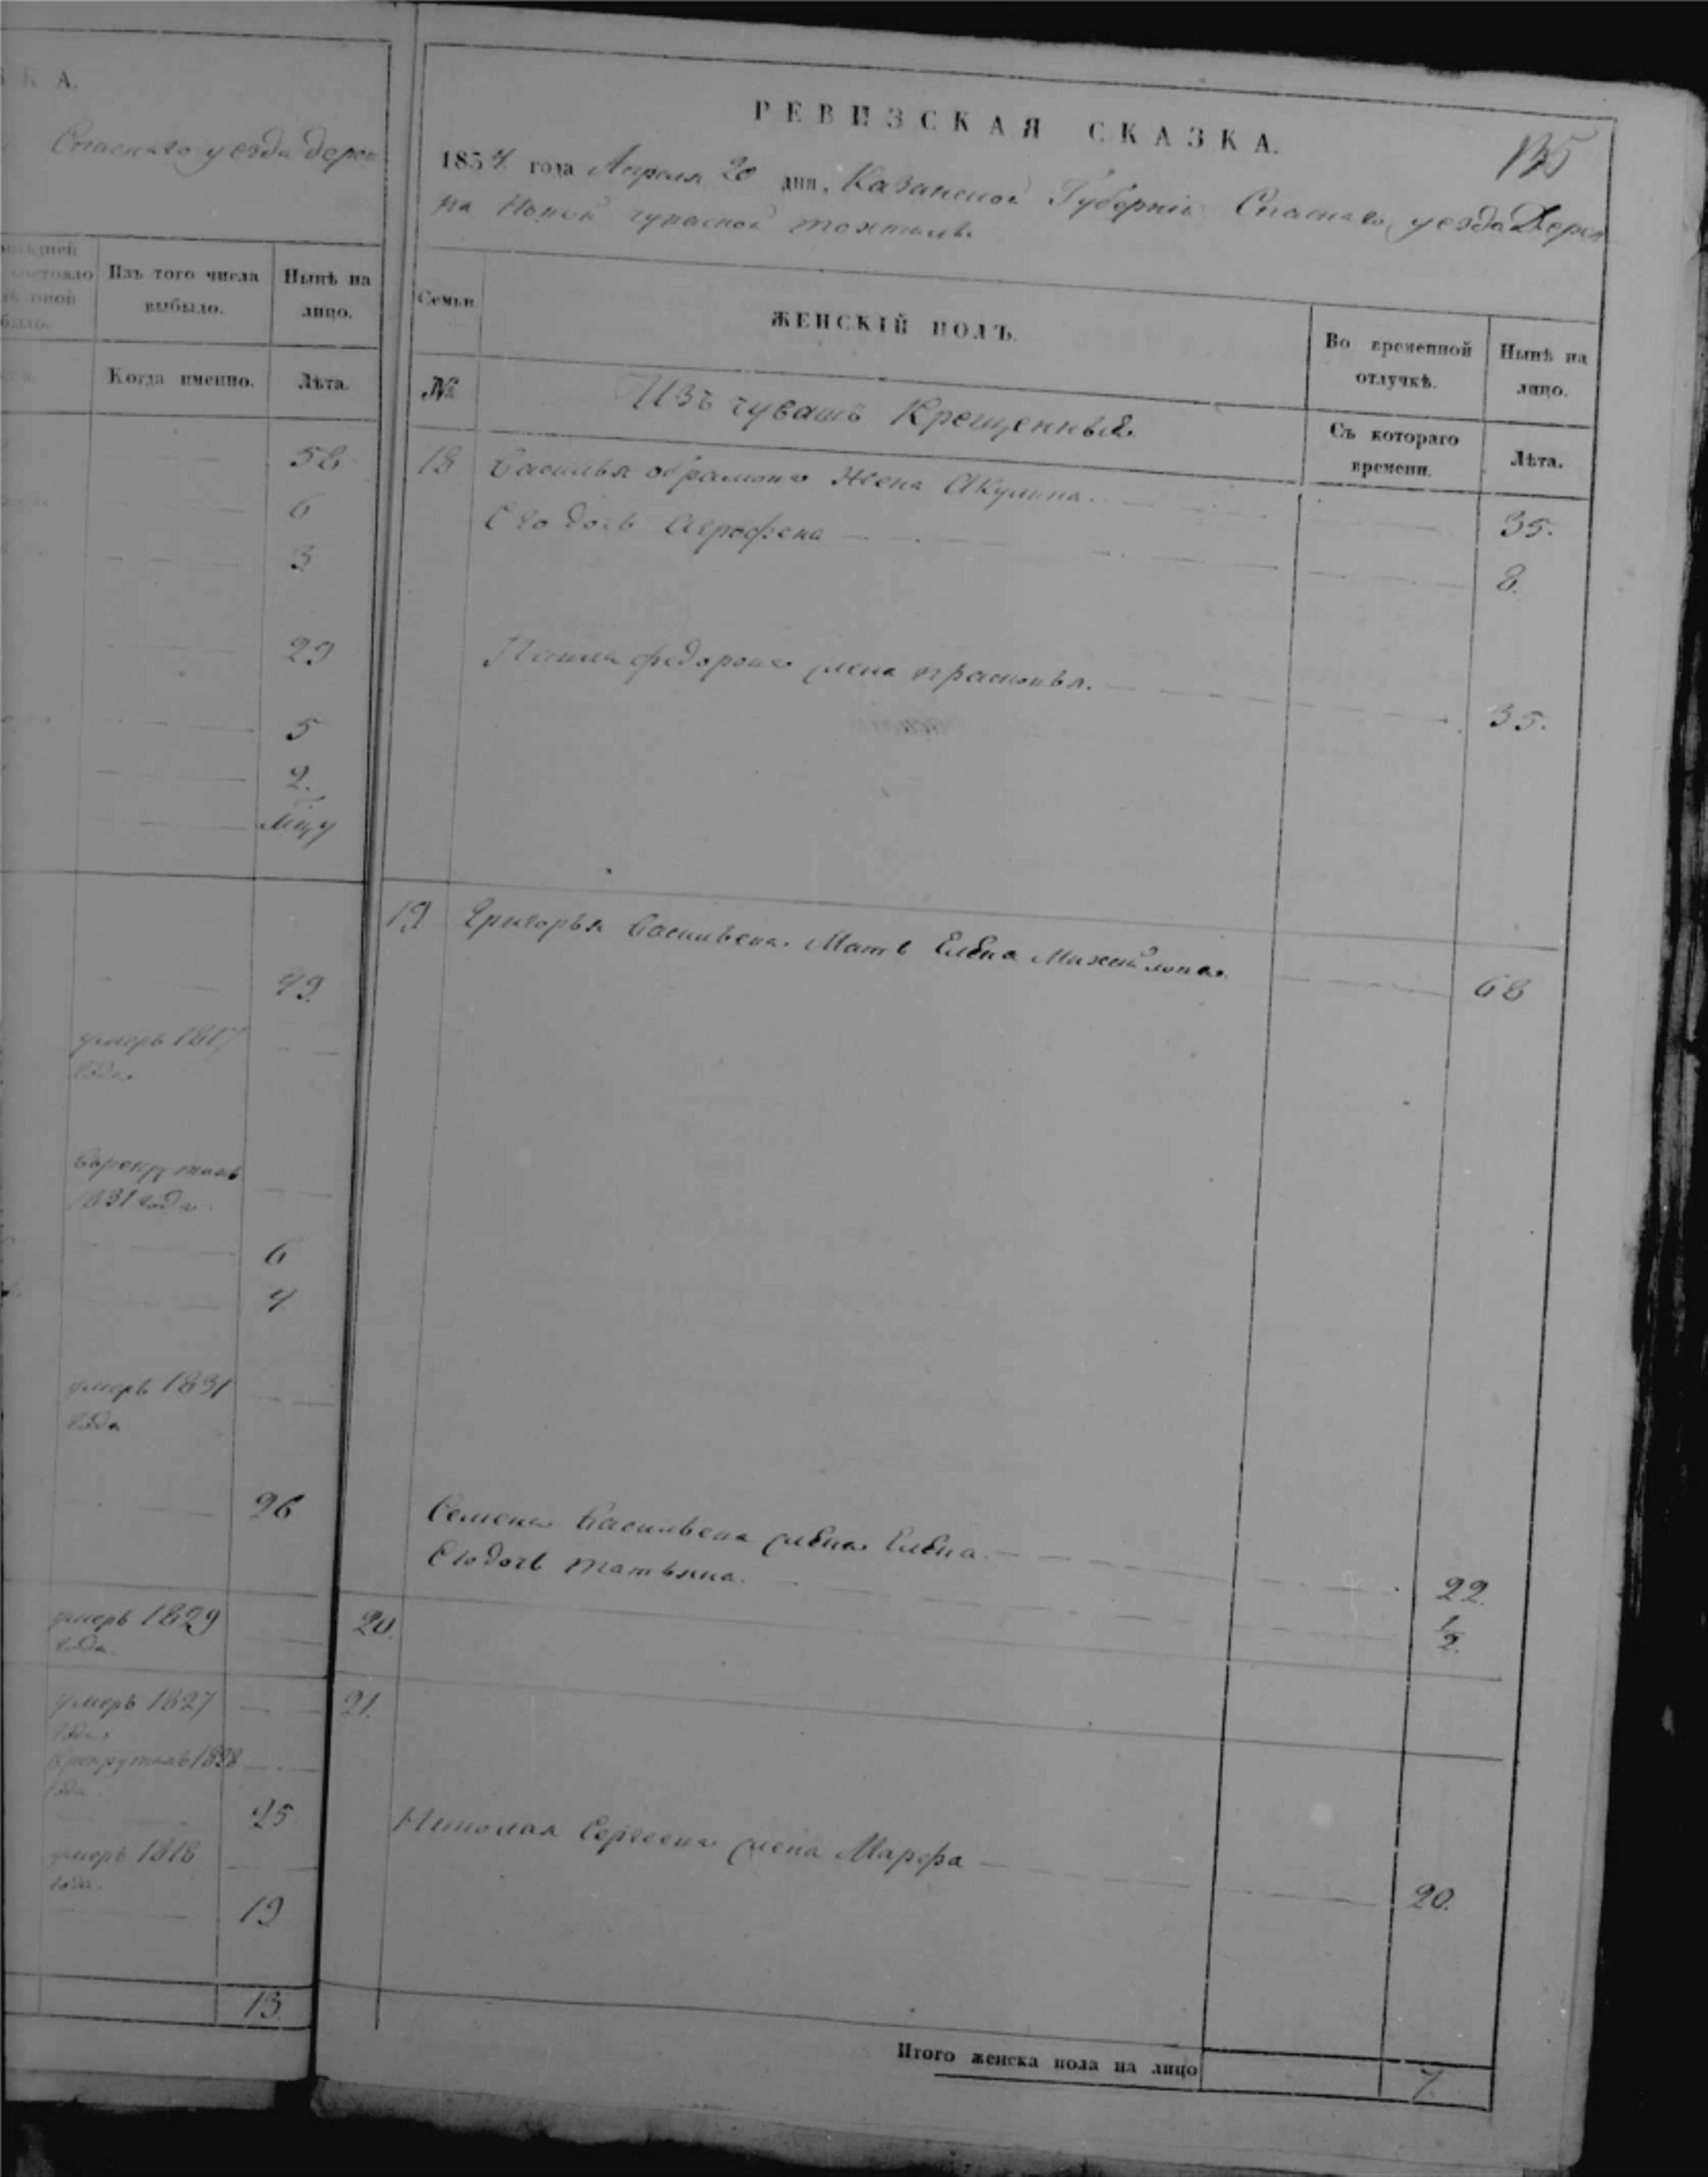 К А.
Спаскаго уезда дерев
Изъ того числа
выбыло.
Нынѣ на
лицо.
Когда именно.
Лѣта.
58
6
3
29
5
2.
49.
умеръ 1817
года.
1831 года
6
4
умеръ 1831
года
26
умеръ 1829
года.
умеръ 1827
года
года
25
умеръ 1818
года.
19
13.
РЕВИЗСКАЯ СКАЗКА.
135
1834 года Апреля 20 дня, Казанской Губерніи Спаскаго уезда Дерев
на Новой чуваской
Семьи
ЖЕНСКІЙ ПОЛЪ.
Во временной
отлучкѣ.
Нынѣ на
лицо.
№
Изъ чувашъ Крещенныя
Съ котораго
времени.
Лѣта.
18 Василья Жена Акулина. 35.
Его дочь Аграфена 8.
Павла федорова жена прасковья. 35.
19 Григорья Васильева Мать Елена Михайлова 68
Семена Васильева жена Елена. 22.
Его дочь татьяна. 1/2.
20.
21.
Николая Сергеева жена Марфа 20.
Итого женска пола на лицо 7.